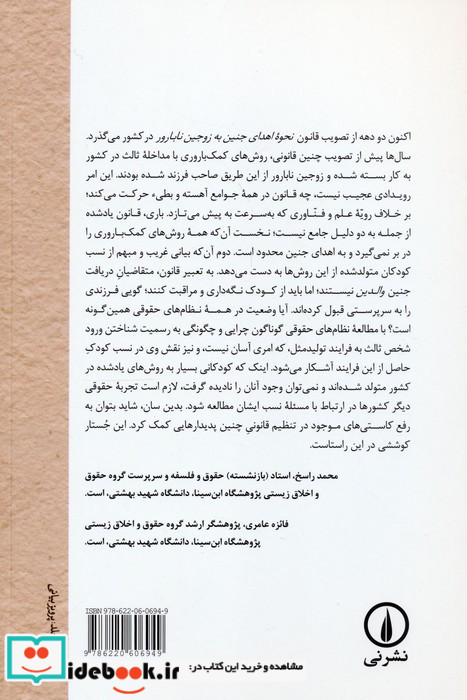 اکنون دو دهه از تصویب قانون نحوهٔ اهدای جنین به زوجین نابارور در کشور می‌گذرد.
سال‌ها پیش از تصویب چنین قانونی، روش‌های کمک‌باروری با مداخلهٔ ثالث در کشور
به کار بسته شده و زوجین نابارور از این طریق صاحب فرزند شده بودند. این امر
رویدادی عجیب نیست، چه قانون در همهٔ جوامع آهسته و بطیء حرکت می‌کند؛
بر خلاف رویّهٔ علم و فنّاوری که به‌سرعت به پیش می‌تازد. باری، قانون یادشده
از جمله به دو دلیل جامع نیست؛ نخست آن‌که همهٔ روش‌های کمک‌باروری را
در بر نمی‌گیرد و به اهدای جنین محدود است. دوم آن‌که بیانی غریب و مبهم از نسب
کودکان متولدشده از این روش‌ها به دست می‌دهد. به تعبیر قانون، متقاضیانِ دریافت
جنین والدین نیستند؛ اما باید از کودک نگه‌داری و مراقبت کنند؛ گویی فرزندی
را به سرپرستی قبول کرده‌اند. آیا وضعیت در همهٔ نظام‌های حقوقی همین‌گونه
است؟ با مطالعهٔ نظام‌های حقوقی گوناگون چرایی و چگونگی به رسمیت شناختن ورود
شخص ثالث به فرایند تولیدمثل، که امری آسان نیست، و نیز نقش وی در نسب کودکِ
حاصل از این فرایند آشکار می‌شود. اینک که کودکانی بسیار به روش‌های یادشده در
کشور متولد شده‌اند و نمی‌توان وجود آنان را نادیده گرفت، لازم است تجربهٔ حقوقی
دیگر کشورها در ارتباط با مسئلهٔ نسب ایشان مطالعه شود. بدین سان، شاید بتوان به
رفع کاستی‌های موجود در تنظیم قانونیِ چنین پدیدارهایی کمک کرد. این جُستار
کوششی در این راستاست.
محمد راسخ، استاد (بازنشسته) حقوق و فلسفه و سرپرست گروه حقوق
و اخلاق زیستی پژوهشگاه ابن‌سینا، دانشگاه شهید بهشتی، است.
فائزه عامری، پژوهشگر ارشد گروه حقوق و اخلاق زیستی
پژوهشگاه ابن‌سینا، دانشگاه شهید بهشتی، است.
ISBN 978-622-06-0694-9
9 786220 606949
نشر نی
جلد: پرویز بیانی
iidebook.ir
مشاهده و خرید این کتاب در: